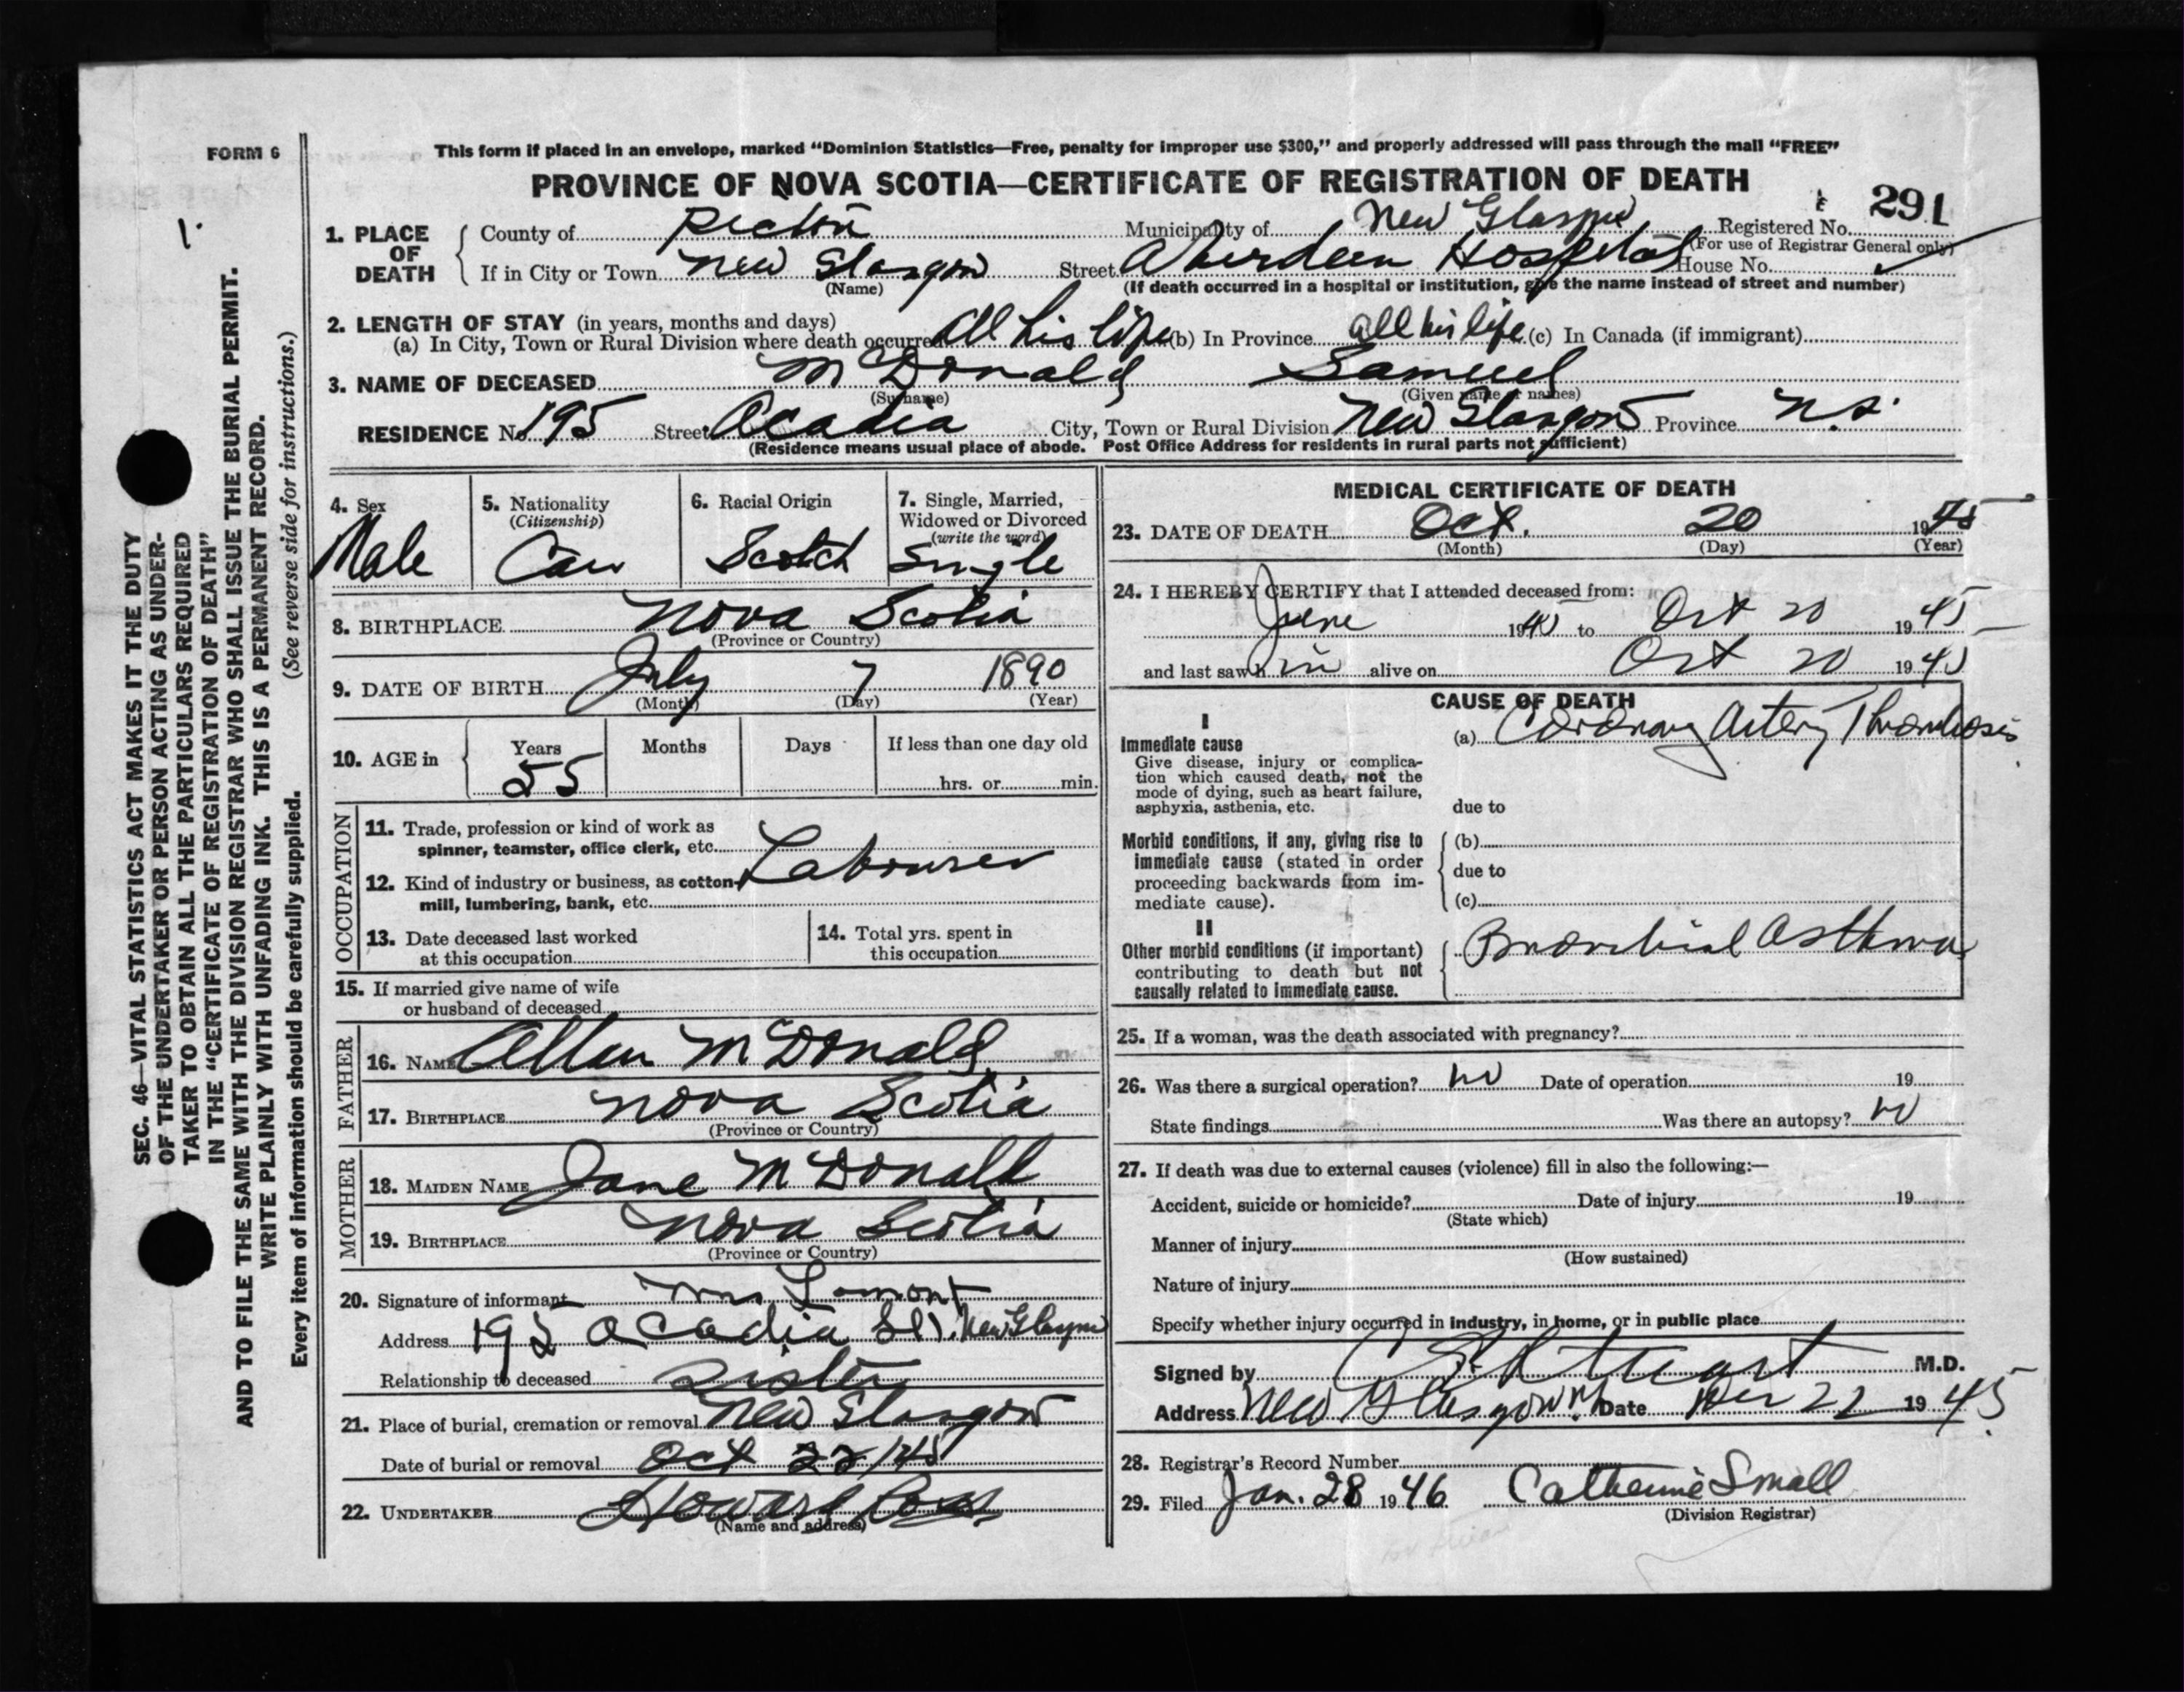 FORM 6
This form if placed in an envelope, marked “Dominion Statistics—Free, penalty for improper use $300,” and properly addressed will pass through the mail “FREE”
PROVINCE OF NOVA SCOTIA—CERTIFICATE OF REGISTRATION OF DEATH
291
1.
1. PLACE OF DEATH
County of Pictou Municipality of New Glasgow Registered No.
(For use of Registrar General only)
If in City or Town New Glasgow Street Aberdeen Hospital House No.
(Name) (If death occurred in a hospital or institution, give the name instead of street and number)
2. LENGTH OF STAY (in years, months and days)
(a) In City, Town or Rural Division where death occurred All his life (b) In Province all his life (c) In Canada (if immigrant)
3. NAME OF DECEASED McDonald Samuel
(Surname) (Given name or names)
RESIDENCE No. 195 Street Acadia City, Town or Rural Division New Glasgow Province N.S.
(Residence means usual place of abode. Post Office Address for residents in rural parts not sufficient)
4. Sex
Male
5. Nationality
(Citizenship)
Can
6. Racial Origin
Scotch
7. Single, Married,
Widowed or Divorced
(write the word)
Single
8. BIRTHPLACE Nova Scotia
(Province or Country)
9. DATE OF BIRTH July 7 1890
(Month) (Day) (Year)
10. AGE in Years Months Days If less than one day old
55 hrs. or min.
OCCUPATION
11. Trade, profession or kind of work as
spinner, teamster, office clerk, etc. Labourer
12. Kind of industry or business, as cotton
mill, lumbering, bank, etc.
13. Date deceased last worked
at this occupation
14. Total yrs. spent in
this occupation
15. If married give name of wife
or husband of deceased
FATHER
16. NAME Allan McDonald
17. BIRTHPLACE Nova Scotia
(Province or Country)
MOTHER
18. MAIDEN NAME Jane McDonald
19. BIRTHPLACE Nova Scotia
(Province or Country)
20. Signature of informant Mrs Lamont
Address 195 Acadia St. New Glasgow
Relationship to deceased Sister
21. Place of burial, cremation or removal New Glasgow
Date of burial or removal Oct 22/45
22. UNDERTAKER Howard Ross
(Name and address)
MEDICAL CERTIFICATE OF DEATH
23. DATE OF DEATH Oct. 20 1945
(Month) (Day) (Year)
24. I HEREBY CERTIFY that I attended deceased from:
June 1945 to Oct 20 1945
and last saw him alive on Oct 20 1945
CAUSE OF DEATH
I
Immediate cause
Give disease, injury or complica-
tion which caused death, not the
mode of dying, such as heart failure,
asphyxia, asthenia, etc.
(a) Coronary Artery Thrombosis
due to
Morbid conditions, if any, giving rise to
immediate cause (stated in order
proceeding backwards from im-
mediate cause).
(b)
due to
(c)
II
Other morbid conditions (if important)
contributing to death but not
causally related to immediate cause.
Bronchial Asthma
25. If a woman, was the death associated with pregnancy?
26. Was there a surgical operation? no Date of operation 19
State findings Was there an autopsy? no
27. If death was due to external causes (violence) fill in also the following:—
Accident, suicide or homicide? Date of injury 19
(State which)
Manner of injury
(How sustained)
Nature of injury
Specify whether injury occurred in industry, in home, or in public place
Signed by M.D.
Address New Glasgow Date 22 1945
28. Registrar's Record Number
29. Filed Jan. 28 1946 Catherine Small
(Division Registrar)
SEC. 46—VITAL STATISTICS ACT MAKES IT THE DUTY
OF THE UNDERTAKER OR PERSON ACTING AS UNDER-
TAKER TO OBTAIN ALL THE PARTICULARS REQUIRED
IN THE “CERTIFICATE OF REGISTRATION OF DEATH”
AND TO FILE THE SAME WITH THE DIVISION REGISTRAR WHO SHALL ISSUE THE BURIAL PERMIT.
WRITE PLAINLY WITH UNFADING INK. THIS IS A PERMANENT RECORD.
Every item of information should be carefully supplied. (See reverse side for instructions.)